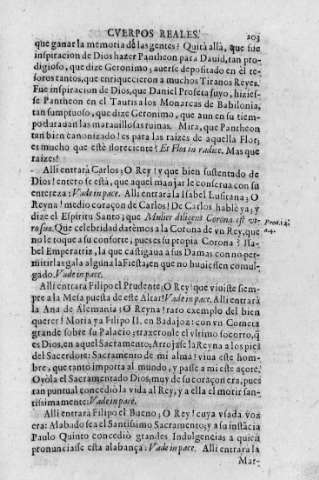 CVERPOS REALES. 203
que ganar la memoria de las gentes? Quirà allà, que fue
inspiracion de Dios hazer Pantheon para Dauid, tan pro-
digioso, que dize Geronimo; auerse depositado en èl te-
soros tantos, que enriquecieron a muchos Tiranos Reyes.
Fue inspiracion de Dios, que Daniel Profeta suyo, hizies-
se Pantheon en el Tauris a los Monarcas de Babilonia,
tan sumptuoso, que dize Geronimo, que aun en su tiem-
po daraua n las marauillosas ruinas. Mira, que Pantheon
tan bien canonizado! es para las raizes de aquella Flor;
es mucho que estè floreciente! Et Flos in radice. Mas que
raizes!
Alli entrarà Carlos; O Rey! y que bien sustentado de
Dios! entero se està, que aquel manjar le conserua con su
entereza: Vade in pace. Alli entrarà la Isabel Lusitana; O
Reyna! medio coraçon de Carlos! De Carlos hablè ya; y
dize el Espiritu Santo; que Mulier diligens Corona est vi- Prou. 12.
ro suo. Que celebridad darèmos a la Corona de vn Rey, que n.4.
no le toque a su conforte; pues es su propia Corona? Isa-
bel Emperatriz, la que castigaua a sus Damas con no per-
mitirlas gala alguna la Fiesta, en que no huuiessen comul-
gado. Vade in pace.
Alli entrarà Filipo el Prudente; O Rey! que viuiste siem-
pre a la Mesa puesta de este Altar! Vade in pace. Alli entrarà
la Ana de Alemania; O Reyna! raro exemplo del bien
querer! Moria ya Filipo II. en Badajoz: con vn Cometa
grande sobre su Palacio; traxeronle el vltimo socorro, q̃
es Dios, en aquel Sacramento; Arrojase la Reyna a los pies
del Sacerdote: Sacramento de mi alma! viua este hom-
bre, que tanto importa al mundo, y passe a mi este açore.
Oyòla el Sacramentado Dios, muy de su coraçon era, pues
tan puntual concediò la vida al Rey, y a ella el morir san-
tissimamente: Vade in pace.
Alli entrarà Filipo el Bueno; O Rey! cuya vsada voz
era: Alabado sea el Santissimo Sacramento; y a su instãcia
Paulo Quinto concediò grandes Indulgencias a quien
pronunciasse esta alabança: Vade in pace. Alli entrarà la
Mar-